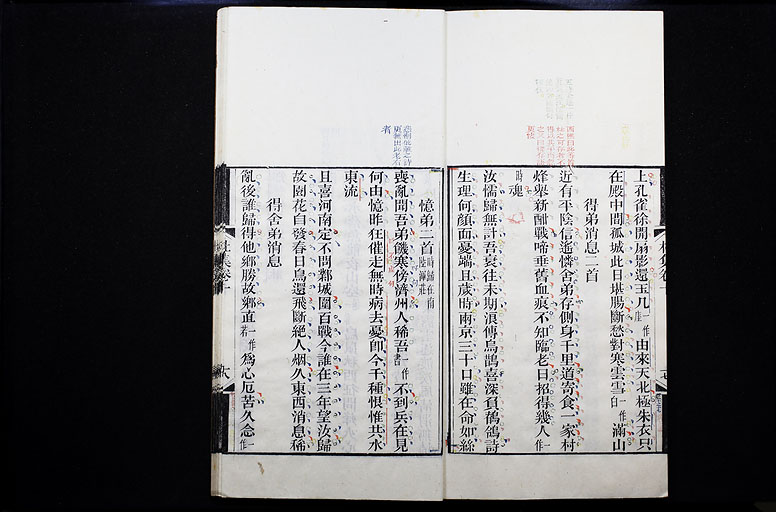 上孔雀徐開扇影還玉几一作座由來天北極朱衣只
在殿中間孤城此日堪腸斷愁對寒雲雪一作白滿山
得弟消息二首
近有平陰信遙憐舍弟存側身千里道寄食一家村
烽舉新酣戰啼垂舊血痕不知臨老日招得幾人一作
時魂
汝懦歸無計吾衰往未期浪傳烏鵲喜深負鶺鴒詩
生理何顏面憂端且歲時兩京三十口雖在命如絲
憶弟二首時歸在南陸渾莊
喪亂聞吾弟饑寒傍濟州人稀吾一作書不到兵在見
何由憶昨狂催走無時病去憂卽今千種恨惟共水
東流
且喜河南定不問鄴城圍百戰今誰在三年望汝歸
故園花自發春日鳥還飛斷絕人烟久東西消息稀
得舍弟消息
亂後誰歸得他鄉勝故鄉直一作若為心厄苦久念一作